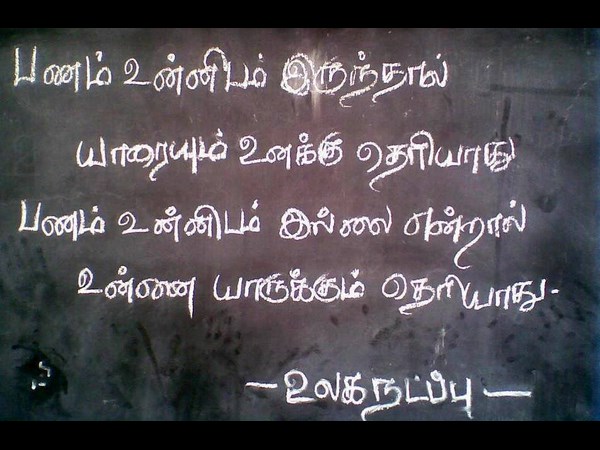 பணம் உன்னிடம் இருந்தால்
யாரையும் உனக்கு தெரியாது
பணம் உன்னிடம் இல்லை என்றால்
உன்னை யாருக்கும் தெரியாது.
— உலகநடப்பு —